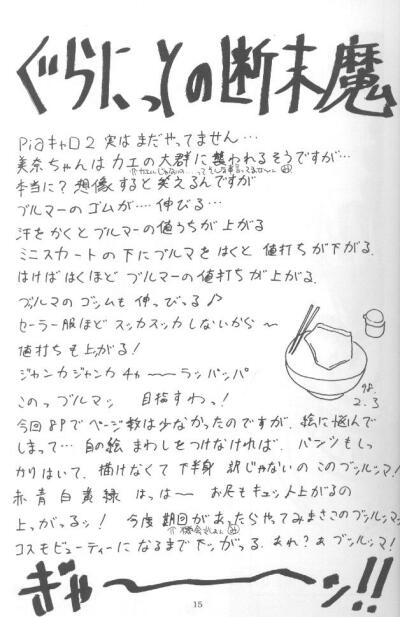 ぐらにっとの断末魔
Piaキャロ2 実はまだやってません…
美奈ちゃんはカエの大群に襲われるそうですが…
本当に?想像すると笑えるんですが
ブルマーのゴムが…伸びる…
汗をかくとブルマーの値うちが上がる
ミニスカートの下にブルマをはくと 値打ちが下がる.
はけばはくほど ブルマーの値打ちが上がる.
ブルマのゴッムも 伸っびっる♪
セーラー服ほど スッカスッカ しないから〜
値打ちも上がる!
ジャンカジャンカ チャ〜〜ランパンパ
このっブルマッ 目指すわっ!
'98.
2.3
今回8Pでページ数は少なかったのですが、絵に悩んで
しまって… 自の絵 まわしをつけなければ、パンツもしっ
かりはいて、描けなくて 下半身 訳じゃないの このブンルンマ!
赤青白黄緑 はっは〜 お尻もキュット上がるの
上っがっるッ! 今度 期回があったらやってみまさこのブンルンマッ
コスモビューティーになるまで下ンがっる. あれ?あブンルンマ!
ぎゃ〜〜ン!!
15